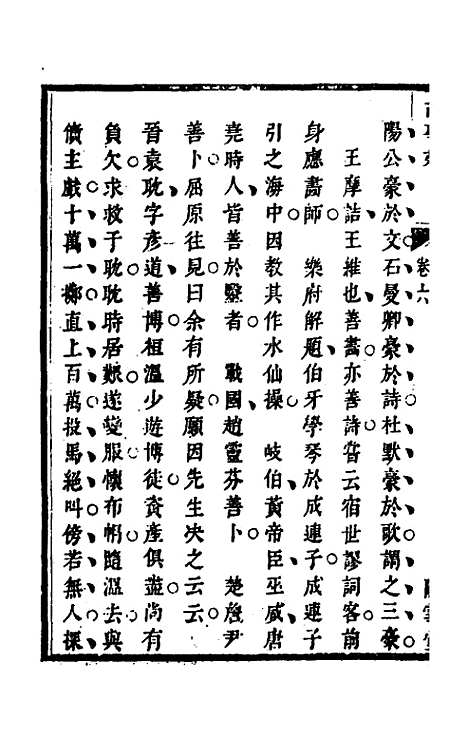 卷六
陽公豪於文石曼卿豪於詩杜默豪於歌謂之三豪
王摩詰王維也善畵亦善詩甞云宿世謬詞客前
身應畵師　樂府解題伯牙學琴於成連子成連子
引之海中因教其作水仙操　岐伯黃帝臣巫咸唐
堯時人皆善於毉者　戰國趙靈芬善卜　楚詹尹
善卜屈原往見曰余有所疑願因先生决之云云
晉袁耽字彥道善博桓溫少遊博徒資產俱盡尚有
負欠求救于耽耽時居艱遂變服懷布帽隨溫去與
債主戲十萬一擲直上百萬投馬絕叫傍若無人探